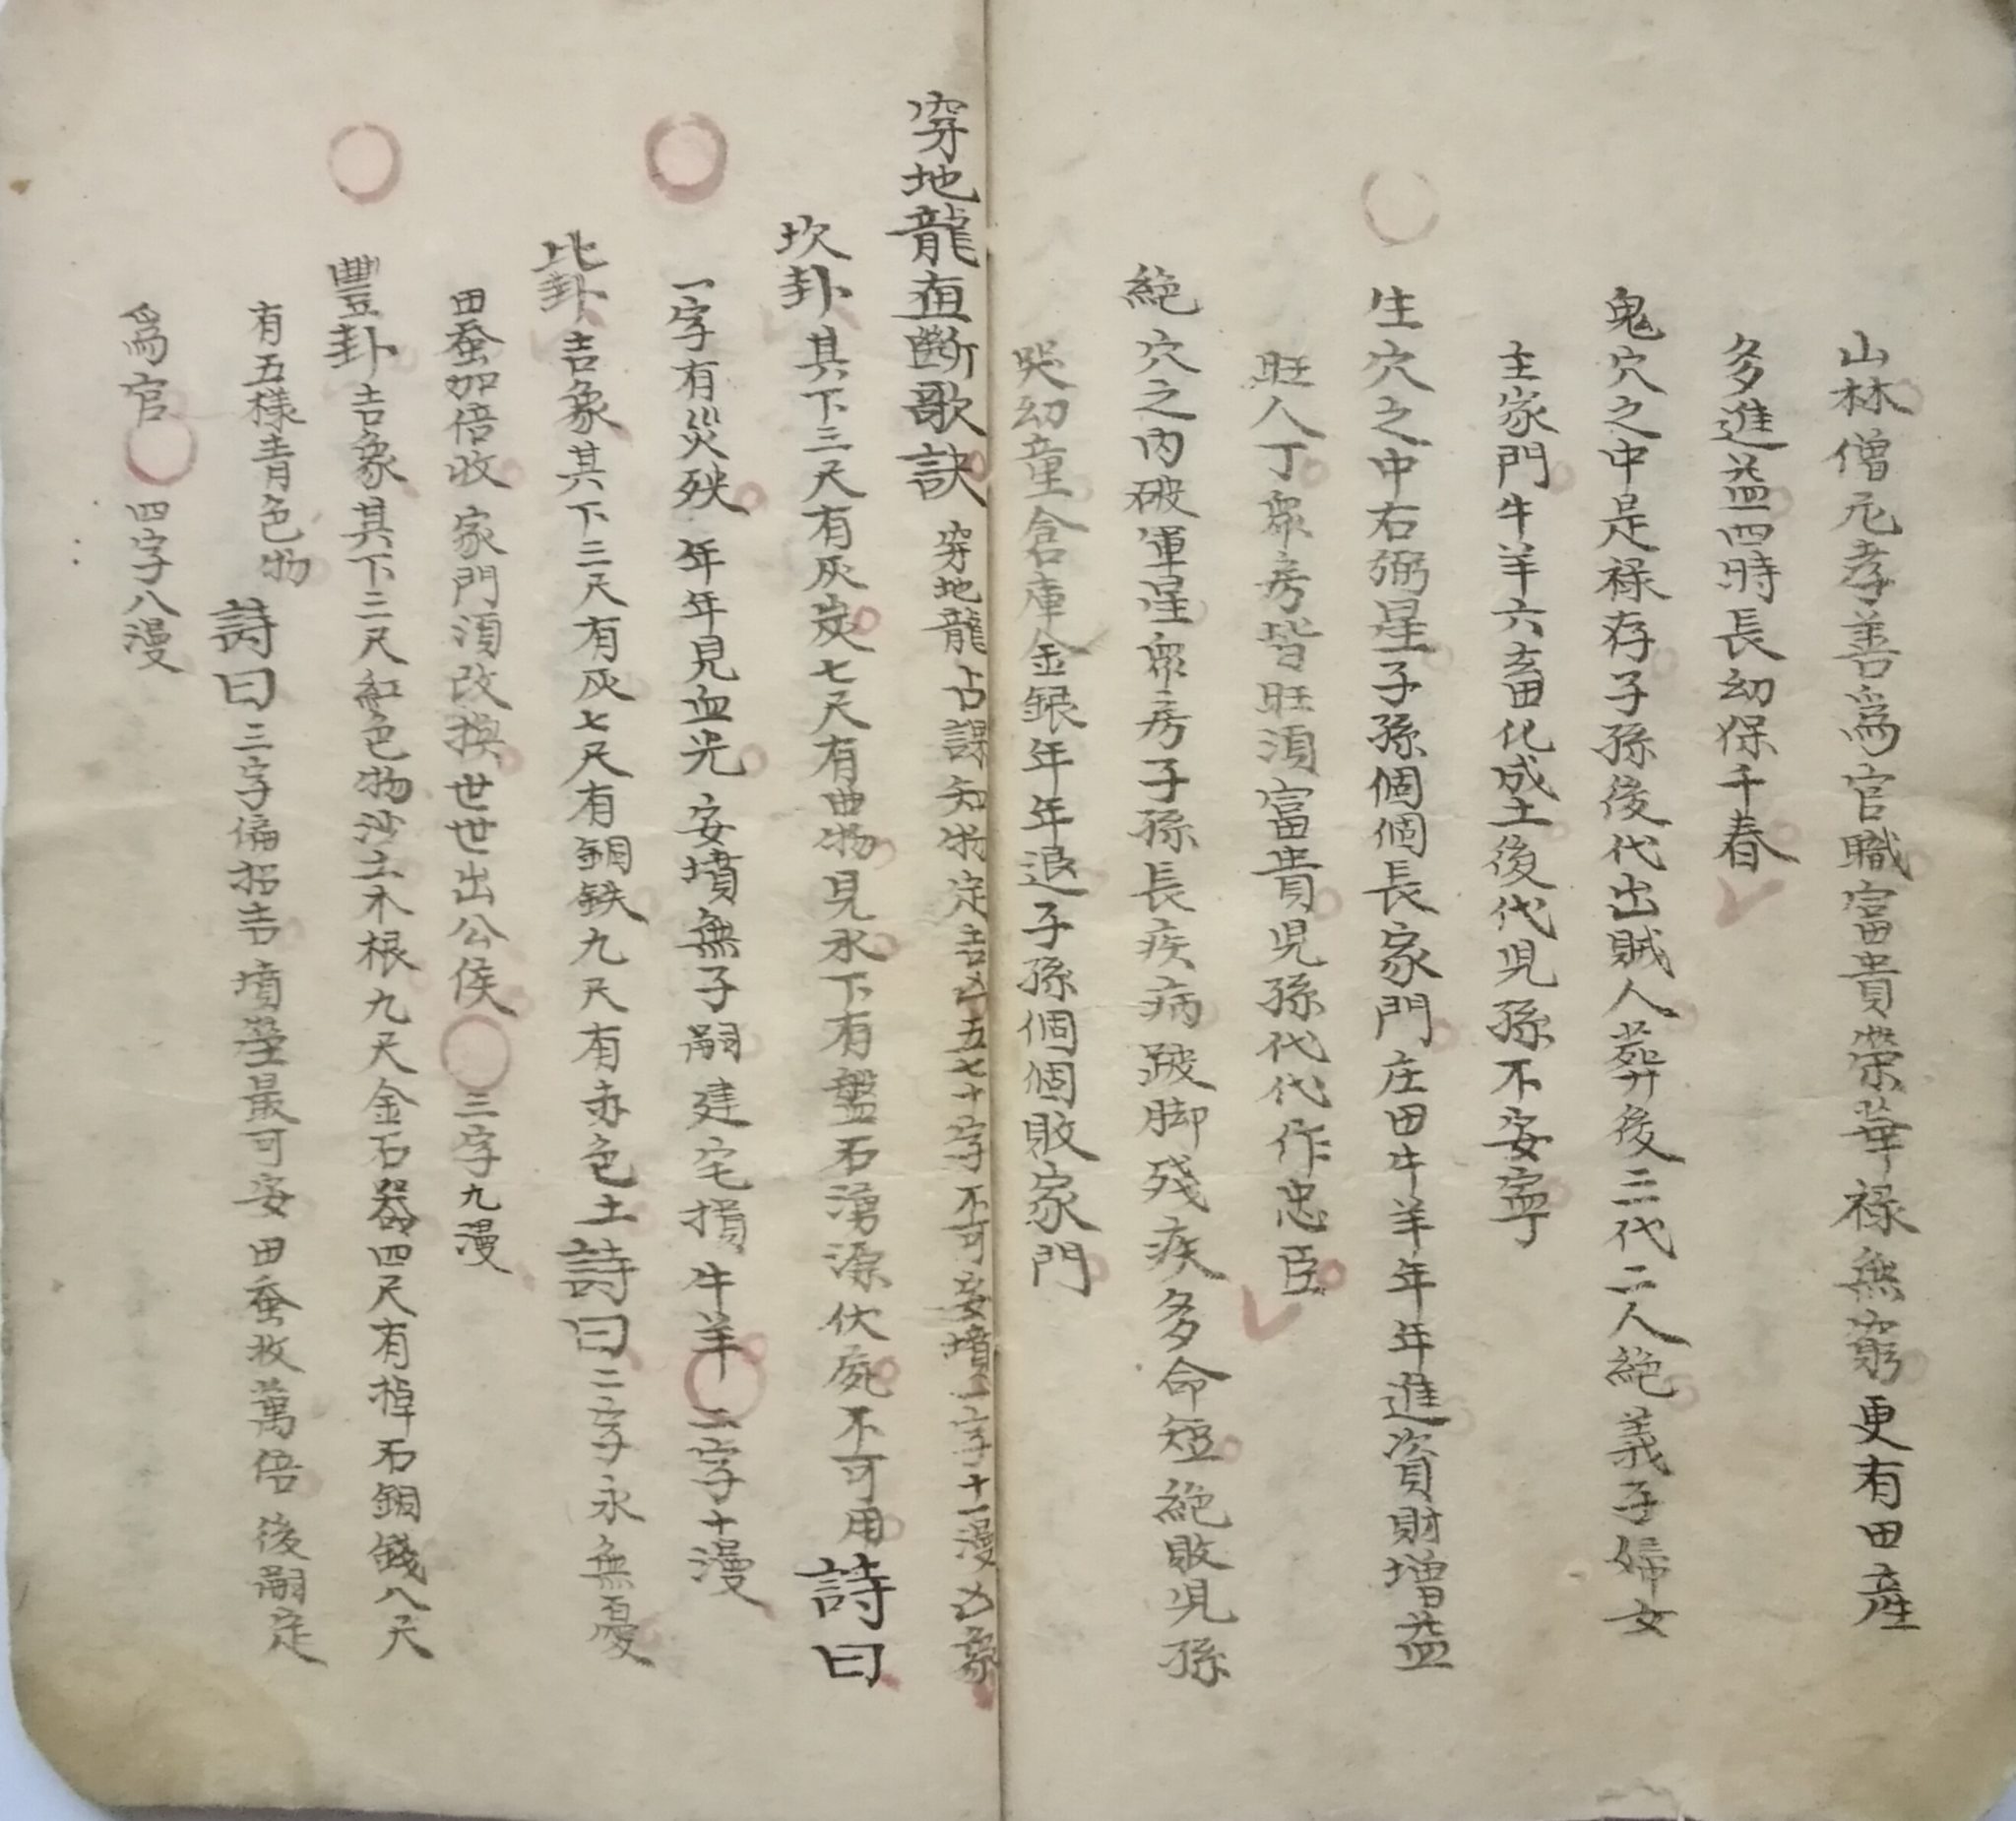 山林僧元孝善為官職富貴榮華禄無窮更有田產
多進益四時長幼保千春
鬼穴之中是禄存子孫後代出賊人葬後三代二人絶義子婦女
主家門牛羊六畜化成土後代児孫不安寧
生穴之中右弼星子孫個個長家門庄田牛羊年年進資財增益
旺人丁眾房皆旺須富貴児孫代代作忠臣
絶穴之內破軍星眾房子孫長疾病跛脚殘疾多命短絶敗児孫
哭幼童倉庫金銀年年退子孫個個敗家門
穿地龍直斷歌訣 穿地龍占課知物定吉凶五七十字不可安墳一字十一漫凶象
坎卦其下三尺有灰炭七尺有曲物見水下有盤石湧源伏屍不可用詩曰
一字有災殃年年見血光安墳無子嗣建宅損牛羊〇二字十漫
比卦吉象其下三尺有灰七尺有銅鉄九尺有赤色土詩曰二字永無憂
田蚕加倍收家門須改換世世出公侯〇三字九漫
豐卦吉象其下三尺紅色物沙土木根九尺金石器四尺有掉石銅錢八尺
有五樣青色物 詩曰三字偏招吉墳塋最可安田蚕收萬倍後嗣定
為官〇四字八漫